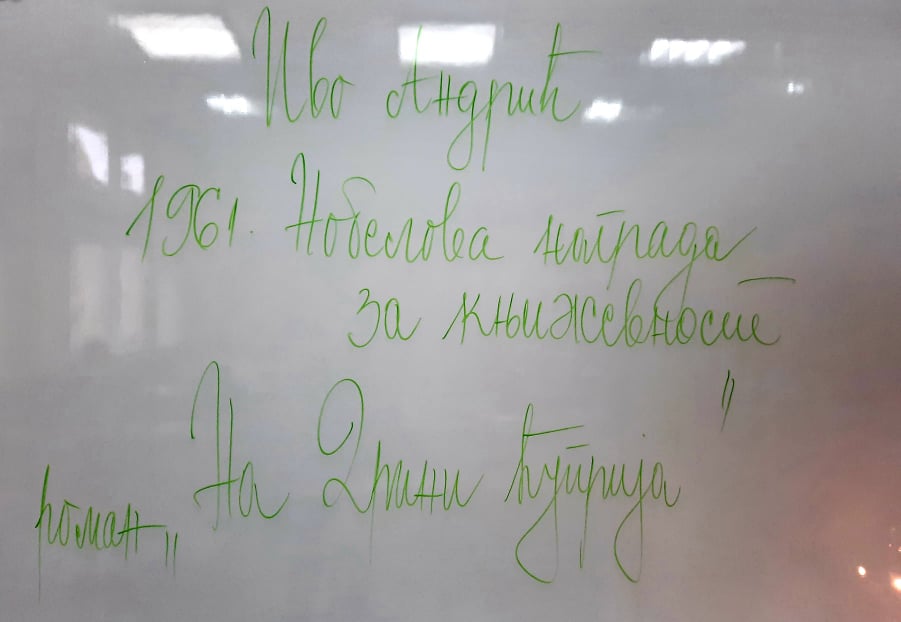 Иво Андрић
1961. Нобелова награда
за књижевност
роман „На Дрини ћуприја"